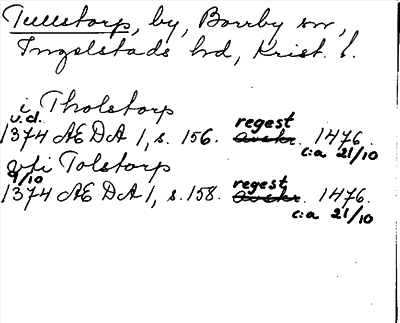 Tullstorp, by, Borrby sn,
Ingelstads hd, Krist. l.
i Tholstorp
u.d. regest
1374 AEDA 1, s. 156. avskr. 1476.
c:a 21/10
vti Tolstorp
9/10 regest
1374 AEDA 1, s. 158. avskr. 1476.
c:a 21/10